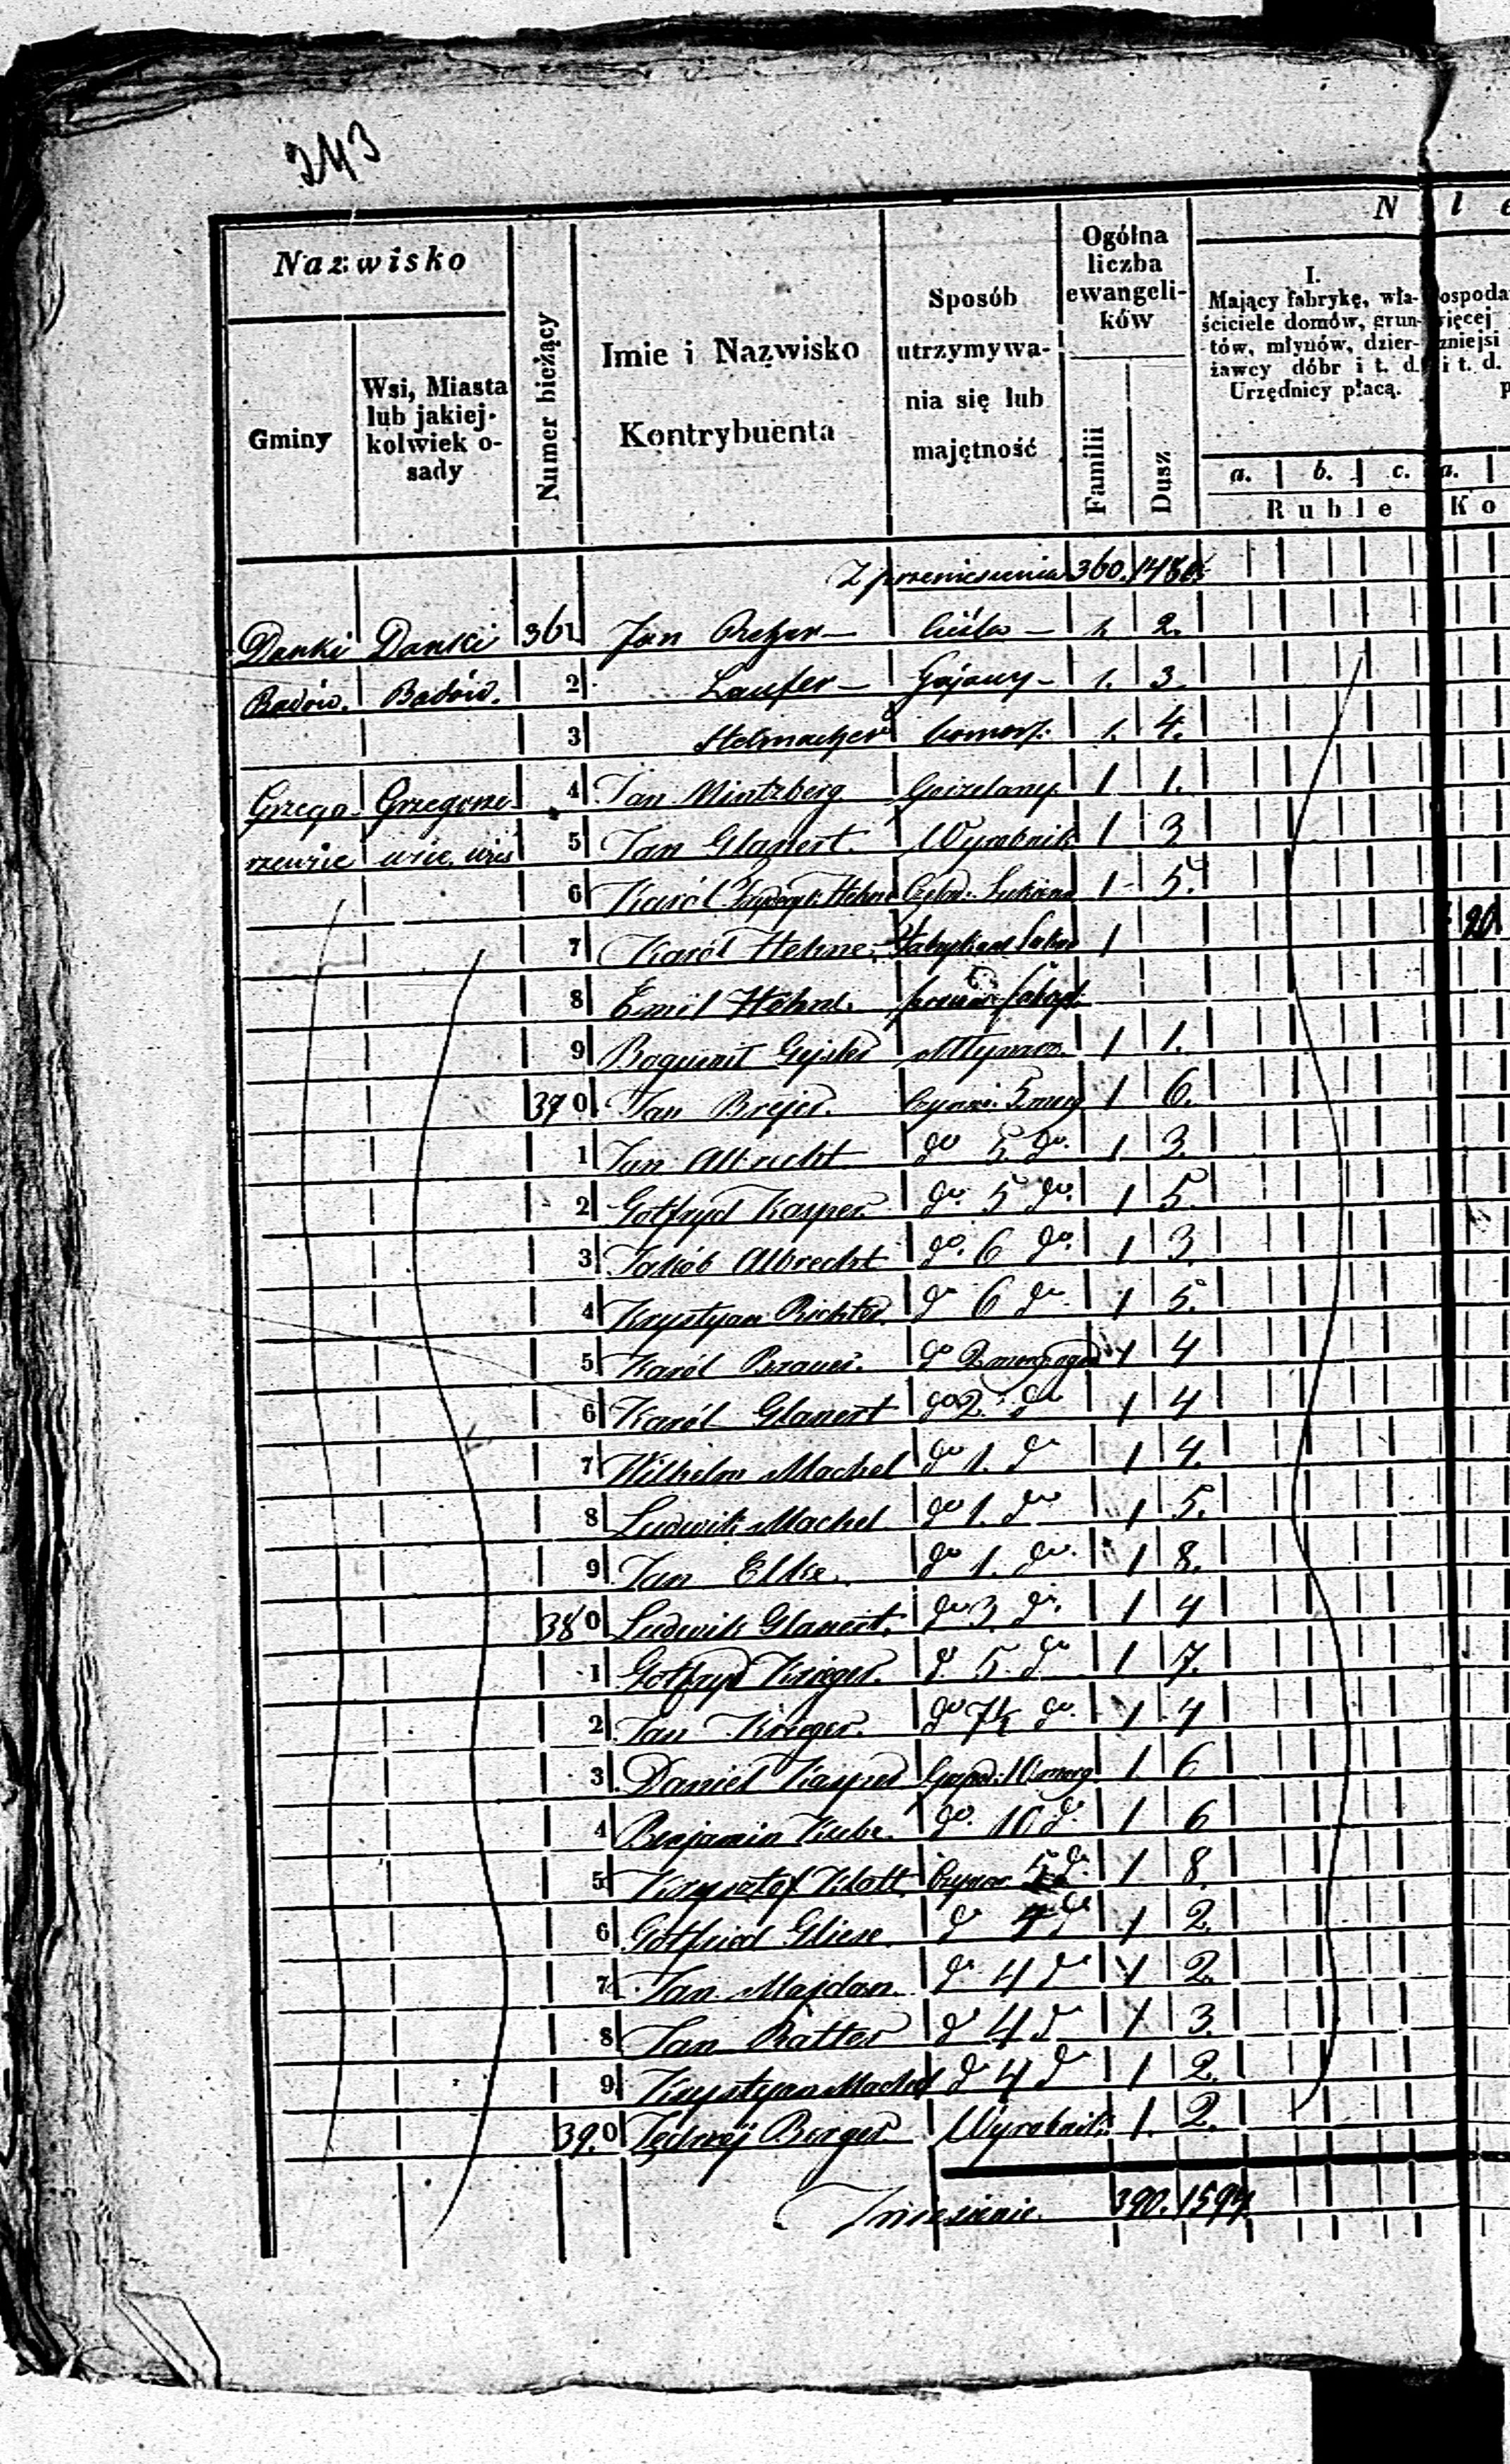 243
Nazwisko
Gminy
Wsi, Miasta
lub jakiej-
kolwiek o-
sady
Numer bieżący
Imie i Nazwisko
Kontrybuenta
Sposób
utrzymywa-
nia się lub
majętność
Ogólna
liczba
ewangeli-
ków
Familii
Dusz
N i e
I.
Mający fabrykę, wła-
ściciele domów, grun-
tów, młynów, dzier-
żawcy dóbr i t. d.
Urzędnicy płacą.
ospoda
ięcej
zniejsi
i t. d.
p
a. b. c. a.
Ruble Ko
Z przeniesienia 360.
Danki Danki 361 Jan 2.
Badów. Badów. 2 Laufer — Gajowy — 1. 3
3 Stelmacher 1. 4.
Grzego- Grzegorze- 4 Jan Mintzberg Gorzelany 1 1.
rzewice wice, wieś 5 Jan Glanert. Wyrobnik 1 3
6 Karól 1 5.
7 Karól Hehne 1 20
8 Emil
9 Bogumił 1 1.
370 Jan Brejer. 5 morg 1 6.
1 Jan Albrecht do 5 do. 1 3.
2 Gotfryd Kasper do. 5 do. 1 5.
3 Jakób Albrecht do. 6 do. 1 3.
4 Krystyan Richter do 6 do 1 5.
5 Karól Brauer. do 2 1 4
6 Karól Glanert do 2. do 1 4
7 Wilhelm Machel do 1. do 1 4.
8 Ludwik Machel do 1. do 1 5.
9 Jan Elke. do 1. do. 1 8.
380 Ludwik Glanert. do 3. do. 1 4
1 Gotfryd Krieger. do 5. do 1 7.
2 Jan Krieger. do 7½ do. 1 4
3 Daniel Kasper 10 morg 1 6
4 Benjamin do. 10 do. 1 6
5 Krysztof Klatt. 5 do. 1 8.
6 Gotfried Gliese do do 1 2.
7 Jan Majdan do 4 do 1 2.
8 Jan Ratter do 4 do 1 3.
9 Krystyan Machel do 4 do 1 2.
390 Jędrzej Berger Wyrobnik 1. 2.
390. 1594.